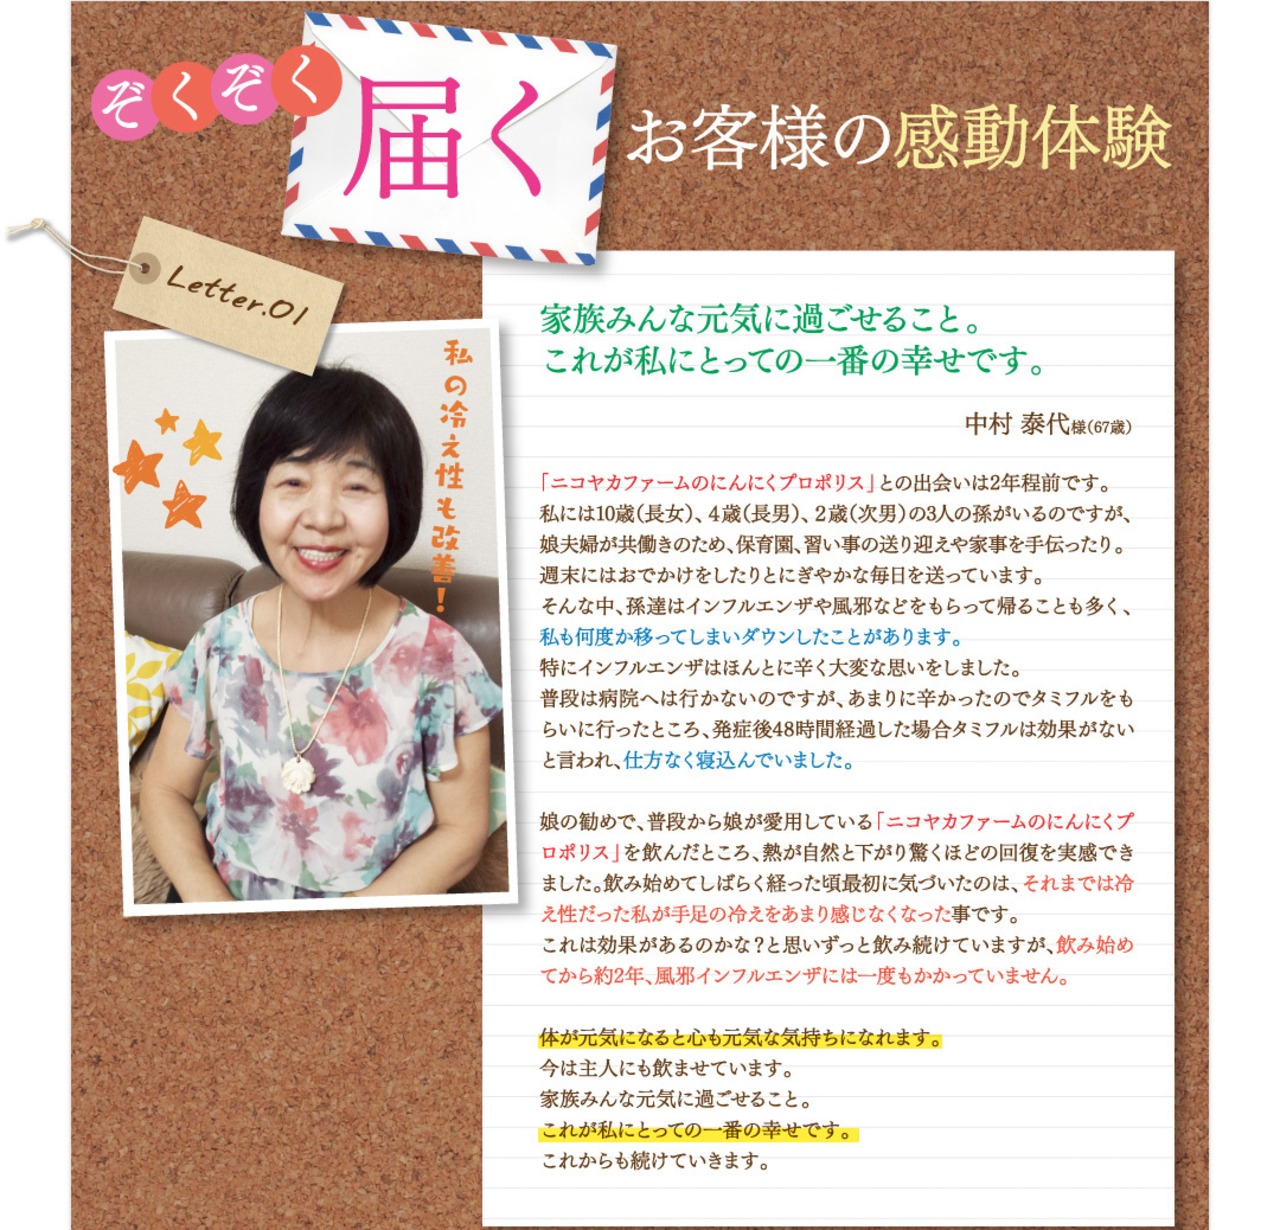 ぞくぞく
届く
お客様の感動体験
Letter.01
私の冷え性も改善！
家族みんな元気に過ごせること。
これが私にとっての一番の幸せです。
中村 泰代様（67歳）
「ニコヤカファームのにんにくプロポリス」との出会いは2年程前です。
私には10歳（長女）、4歳（長男）、2歳（次男）の3人の孫がいるのですが、
娘夫婦が共働きのため、保育園、習い事の送り迎えや家事を手伝ったり。
週末にはおでかけをしたりとにぎやかな毎日を送っています。
そんな中、孫達はインフルエンザや風邪などをもらって帰ることも多く、
私も何度か移ってしまいダウンしたことがあります。
特にインフルエンザはほんとに辛く大変な思いをしました。
普段は病院へは行かないのですが、あまりに辛かったのでタミフルをも
らいに行ったところ、発症後48時間経過した場合タミフルは効果がない
と言われ、仕方なく寝込んでいました。
娘の勧めで、普段から娘が愛用している「ニコヤカファームのにんにくプ
ロポリス」を飲んだところ、熱が自然と下がり驚くほどの回復を実感でき
ました。飲み始めてしばらく経った頃最初に気づいたのは、それまでは冷
え性だった私が手足の冷えをあまり感じなくなった事です。
これは効果があるのかな？と思いずっと飲み続けていますが、飲み始め
てから約2年、風邪インフルエンザには一度もかかっていません。
体が元気になると心も元気な気持ちになれます。
今は主人にも飲ませています。
家族みんな元気に過ごせること。
これが私にとっての一番の幸せです。
これからも続けていきます。